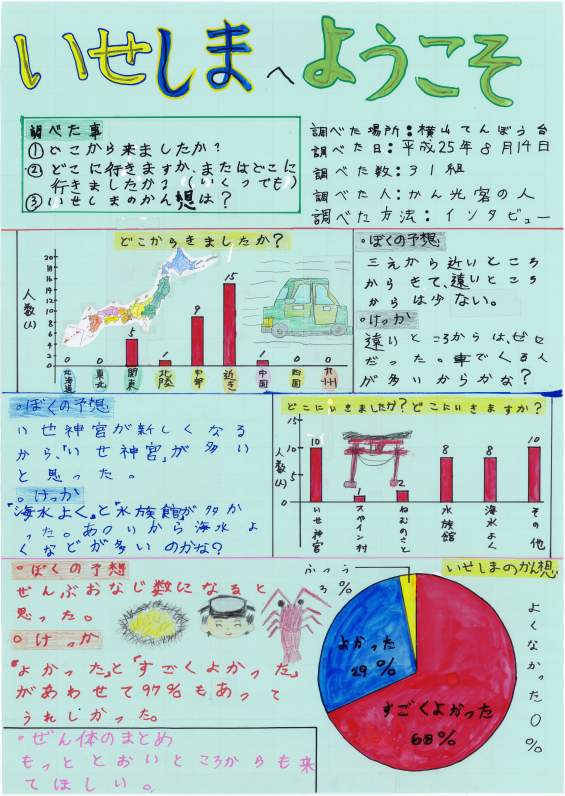 いせしまへようこそ
調べた事
①どこから来ましたか?
②どこに行きますか、またはどこに
行きましたか?(いくつでも)
③いせしまのかん想は?
調べた場所:横山てんぼう台
調べた日:平成25年8月14日
調べた数:31組
調べた人:かん光客の人
調べた方法:インタビュー
どこからきましたか?
人数(人)
20
18
16
14
12
10
8
6
4
2
0
0 0 5 1 9 15 1 0 0
北海道 東北 関東 北陸 中部 近き 中国 四国 九州
○ぼくの予想
三えから近いところ
からきて、遠いところ
からは少ない。
○けっか
遠いところからは、ゼロ
だった。車でくる人
が多いからかな?
○ぼくの予想
いせ神宮が新しくなる
から、「いせ神宮」が多い
と思った。
○けっか
「海水よく」と「水族館」が多か
った。あついから海水よ
くなどが多いのかな?
どこにいきましたか?どこにいきますか?
人数(人)
15
10
5
0
10 1 2 8 8 10
いせ神宮 スペイン村 ねむのさと 水族館 海水よく その他
○ぼくの予想
ぜんぶおなじ数になると
思った。
○けっか
「よかった」と「すごくよかった」
があわせて97%もあって
うれしかった。
いせしまのかん想
ふつう
3%
よかった
29%
すごくよかった
68%
よくなかった0%
○ぜん体のまとめ
もっととおいところからも来
てほしい。